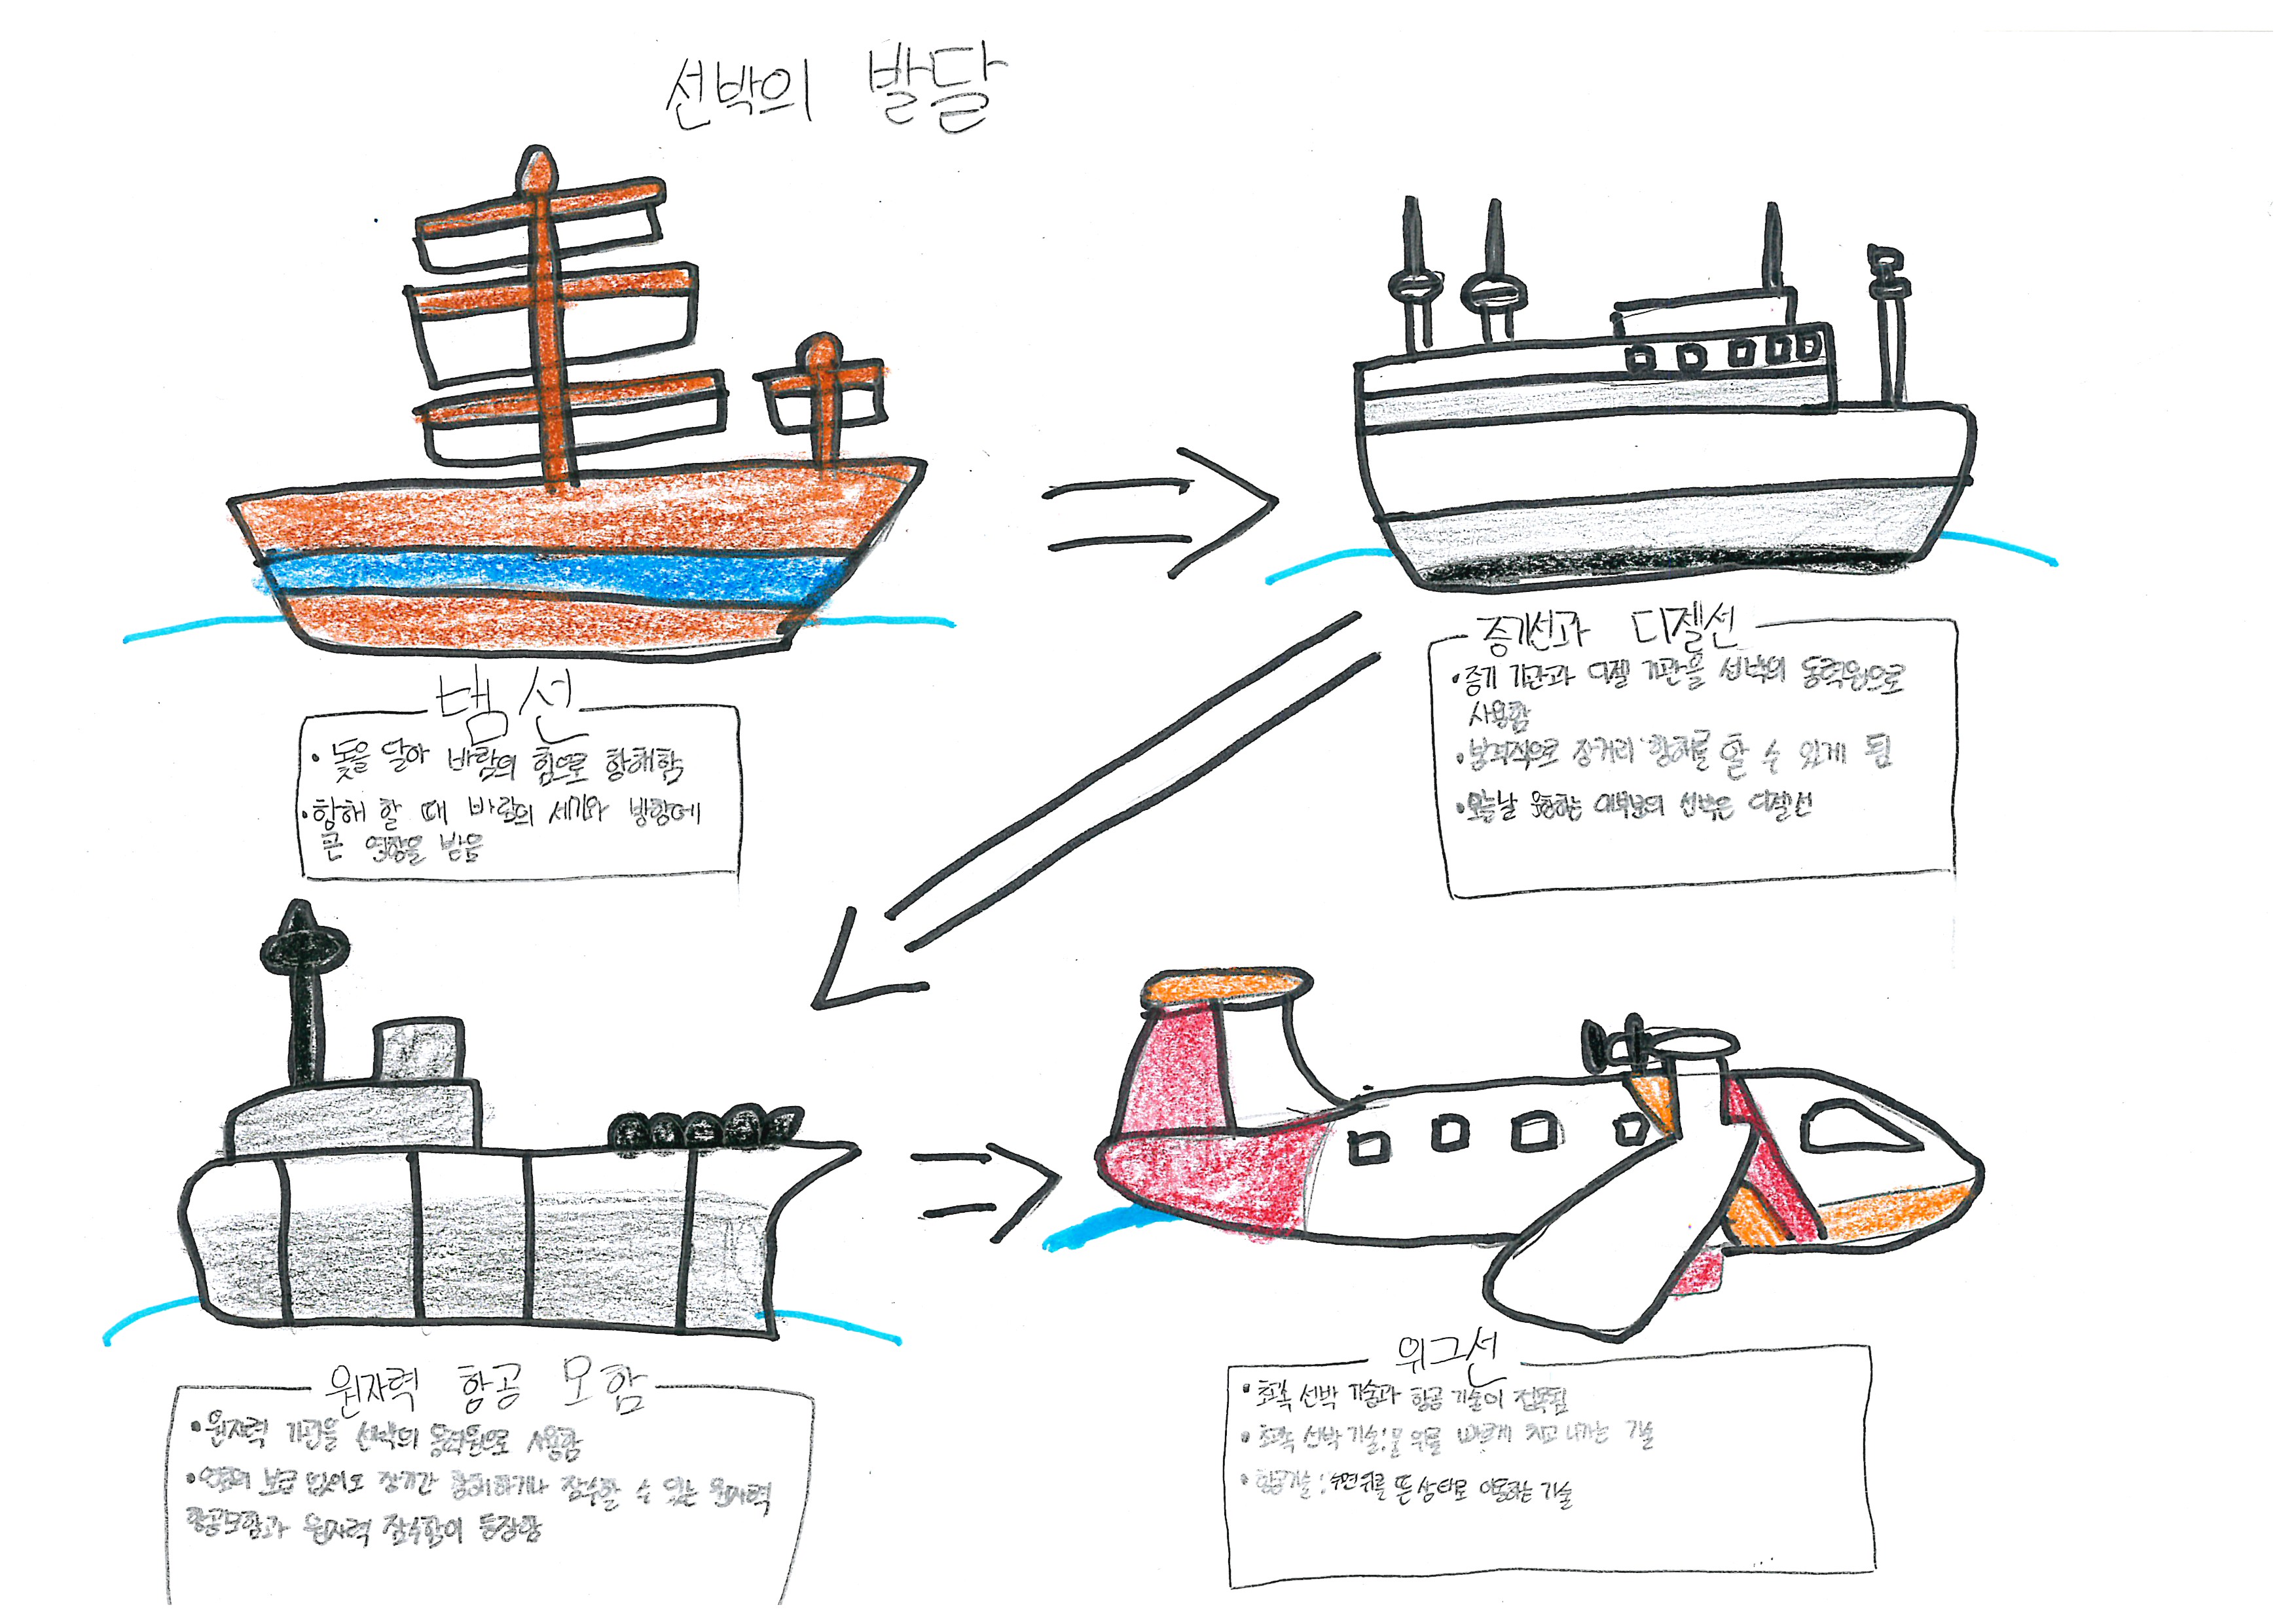 선박의 발달
댐선
• 돛을 달아 바람의 힘으로 항해함
• 항해 할 때 바람의 세기와 방향에
큰 영향을 받음
증기선과 디젤선
• 증기 기관과 디젤 기관을 선박의 동력원으로
사용함
• 본격적으로 장거리 항해를 할 수 있게 됨
• 오늘날 운항하는 대부분의 선박은 디젤선
원자력 항공 모함
• 원자력 기관을 선박의 동력원으로 사용함
• 연료의 보급 없이도 장기간 항해하거나 잠수할 수 있는 원자력
항공모함과 원자력 잠수함이 등장함
위그선
• 초고속 선박 기술과 항공 기술이 접목됨
• 초고속 선박 기술 : 물 위를 빠르게 치고 나가는 기술
• 항공기술 : 수면위를 뜬 상태로 이동하는 기술